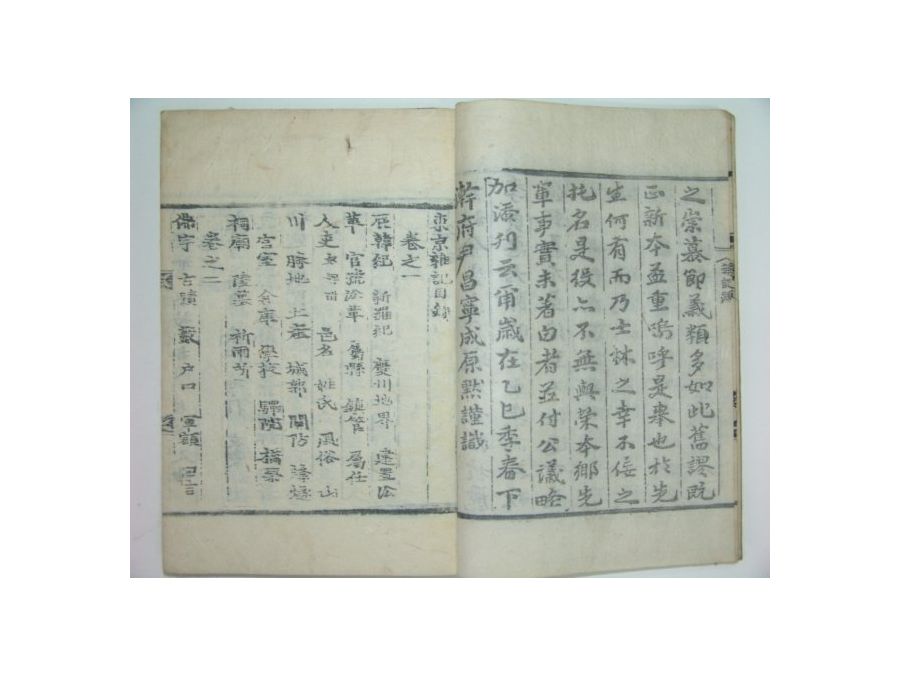 之崇慕節義類多如此舊謬既
正新本孟重嗚呼是擧也於先
生何有而乃士林之幸不佞之
托名是役亦不無與榮本鄕先
輩事實未著白者並付公議略
加添刊云甭歲在乙巳季春下
澣府尹昌寧成原默謹識
東京雜記目錄
卷之一
辰韓紀 新羅紀 慶州地界 建置沿
革 官號沿革 屬縣 鎭管 屬任
人吏 邑名 姓氏 風俗 山
川 勝地 土産 城郭 關防 烽燧
宮室 倉庫 學校 驛院 橋梁
祠廟 陵墓 祈雨所
卷之二
佛宇 古蹟 戶口 軍額